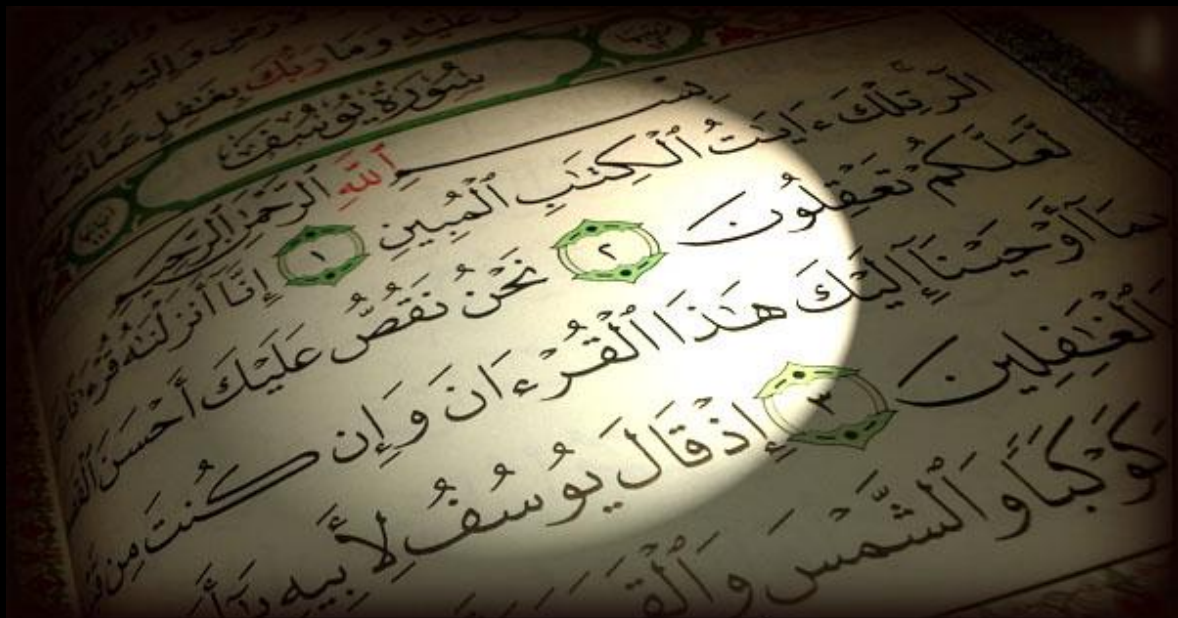 وَإِلَيْهِ يُرْجَعُ
عَلَيْهِ وَمَا رَبُّكَ بِغَٰفِلٍ عَمَّا
سُورَةُ يُوسُفَ
بِسْمِ ٱللَّهِ ٱلرَّحْمَٰنِ ٱلرَّحِيمِ
الٓر تِلْكَ ءَايَٰتُ ٱلْكِتَٰبِ ٱلْمُبِينِ ١ إِنَّآ أَنزَلْنَٰهُ قُرْءَٰنًا
لَّعَلَّكُمْ تَعْقِلُونَ ٢ نَحْنُ نَقُصُّ عَلَيْكَ أَحْسَنَ
بِمَآ أَوْحَيْنَآ إِلَيْكَ هَٰذَا ٱلْقُرْءَانَ وَإِن كُنتَ مِن
ٱلْغَٰفِلِينَ ٣ إِذْ قَالَ يُوسُفُ لِأَبِيهِ
كَوْكَبًا وَٱلشَّمْسَ